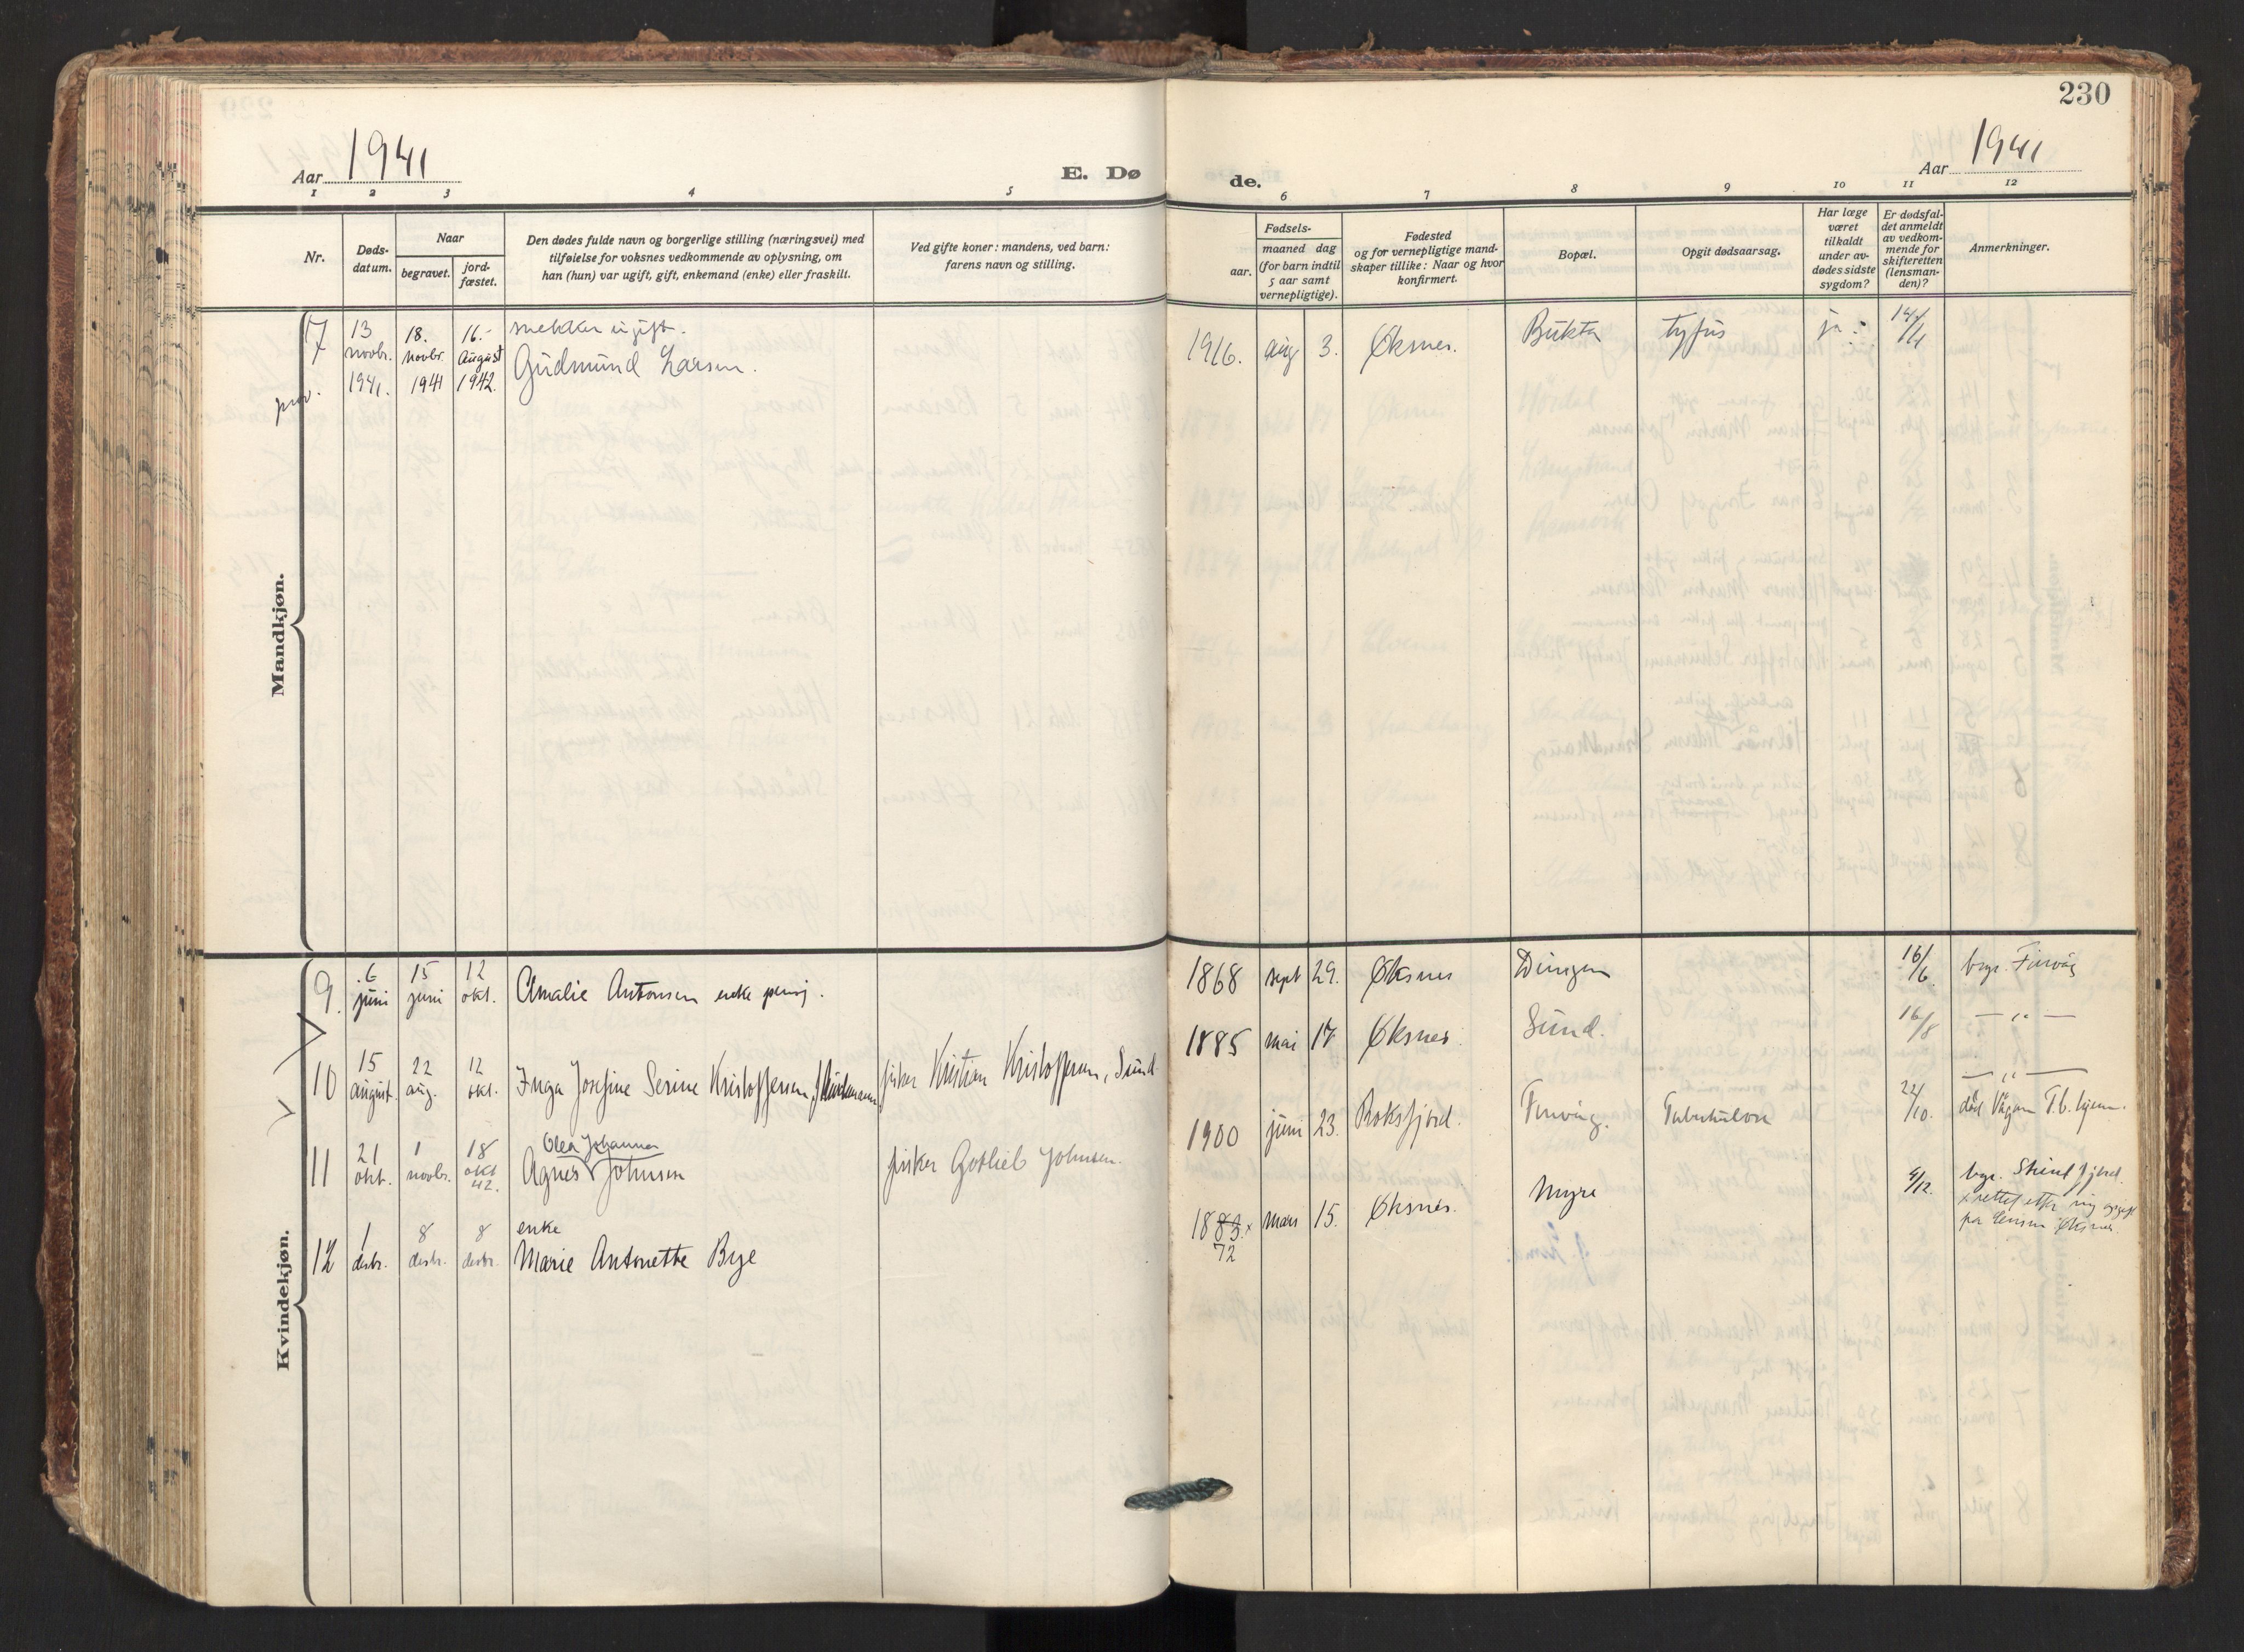 230
Aar 1941
E. Dø
de.
Aar 1941
1 2 3 4 5 6 7 8 9 10 11 12
Nr.
Døds-
datum.
Naar
begravet.
jord-
fæstet.
Den dødes fulde navn og borgerlige stilling (næringsvei) med
tilføielse for voksnes vedkommende av oplysning, om
han (hun) var ugift, gift, enkemand (enke) eller fraskilt.
Ved gifte koner: mandens, ved barn:
farens navn og stilling.
Fødsels-
aar.
maaned dag
(for barn indtil
5 aar samt
vernepligtige).
Fødested
og for vernepligtige mand-
skaper tillike: Naar og hvor
konfirmert.
Bopæl.
Opgit dødsaarsag.
Har læge
været
tilkaldt
under av-
dødes sidste
sygdom?
Er dødsfal-
det anmeldt
av vedkom-
mende for
skifteretten
(lensman-
den)?
Anmerkninger.
Mandkjøn.
7 13 18. 16. snekker ugift. 1916. aug 3. Øksnes. Bukta tyfus ja
novbr. novbr. august Gudmund Larsen.
1941. 1941 1942.
Kvindekjøn.
9. 6 15 12 1868 sept 29. Øksnes 16/6
juni juni okt. Amalie Antonsen enke
10 15 22 12 1885 mai 17 Øksnes Sund. 16/8 — " —
august. aug. okt. Inga Josefine Serine Kristoffersen, fisker Kristian Kristoffersen, Sund
— " —
11 21 1 18 Olea Johanna 1900 juni 23. 22/10. død Vågan T.b. hjem.
okt. novbr. okt 42. Agnes Johnsen fisker Gotlieb Johnsen.
12 1 8 8 enke 1883.x mars 15. Øksnes. Myre 4/12.
desbr. desbr. desbr. Marie Antonette Bye 72